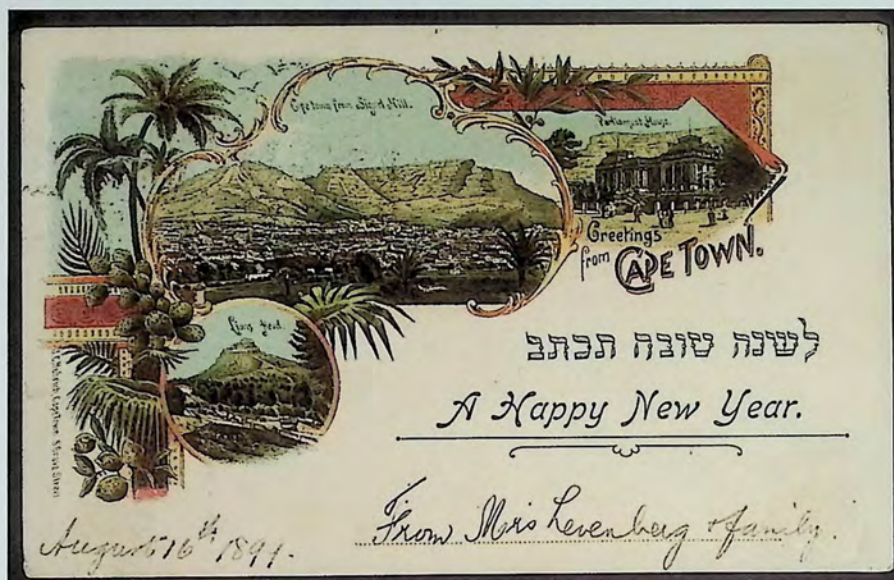 Cape town from Signal Hill.
Parliament House.
Greetings
from CAPE TOWN.
Lions Head.
לשנה טובה תכתב
A Happy New Year.
From Mrs Levenberg & family.
August 16th